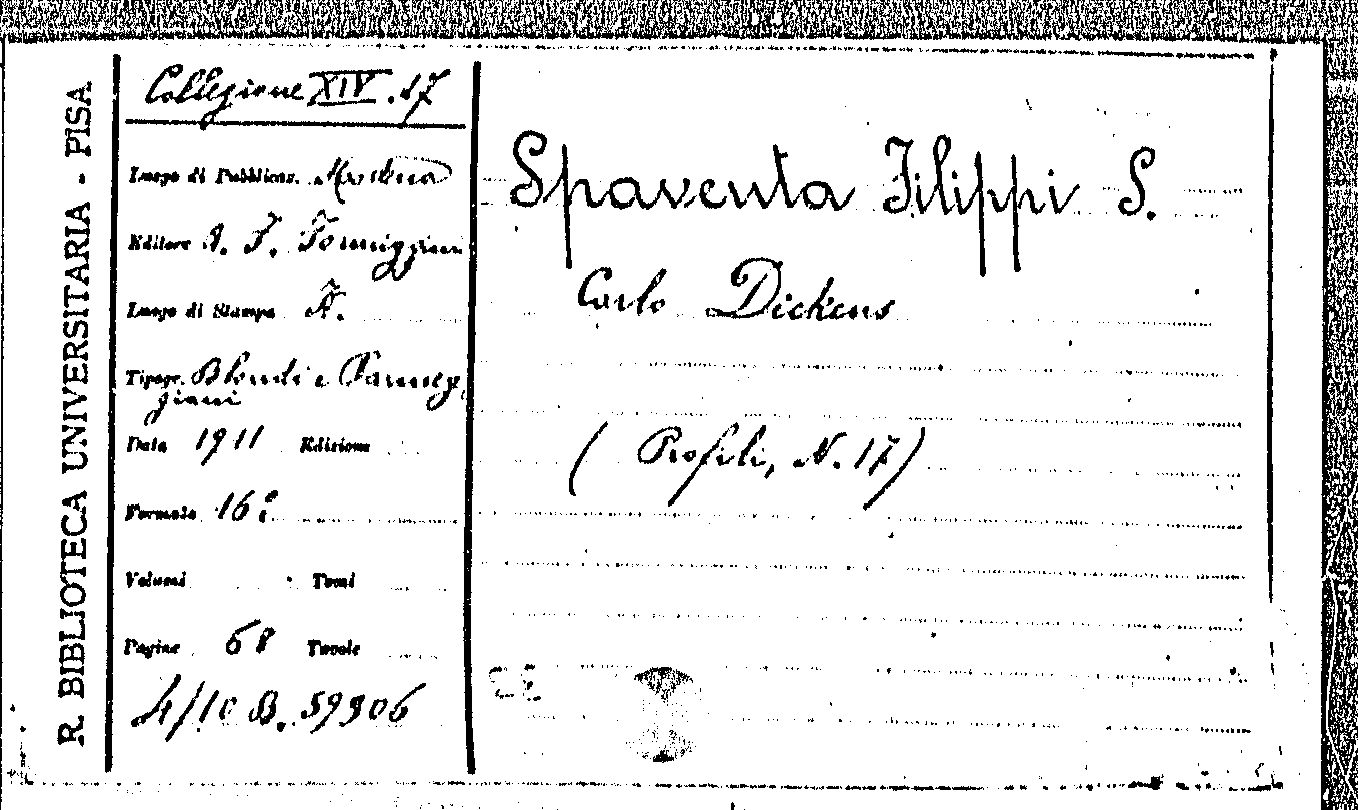 R. BIBLIOTECA UNIVERSITARIA - PISA
Collezione XIV. 17
Luogo di Pubblicaz. Modena
Editore A. F. Formiggini
Luogo di Stampa
Tipogr. Blondi e Parmeg
giani
Data 1911 Edizione
Formato 16º
Volumi Tomi
Pagine 68 Tavole
4/10 B. 59906
Spaventa Filippi S.
Carlo Dickens
( Profili, N. 17)